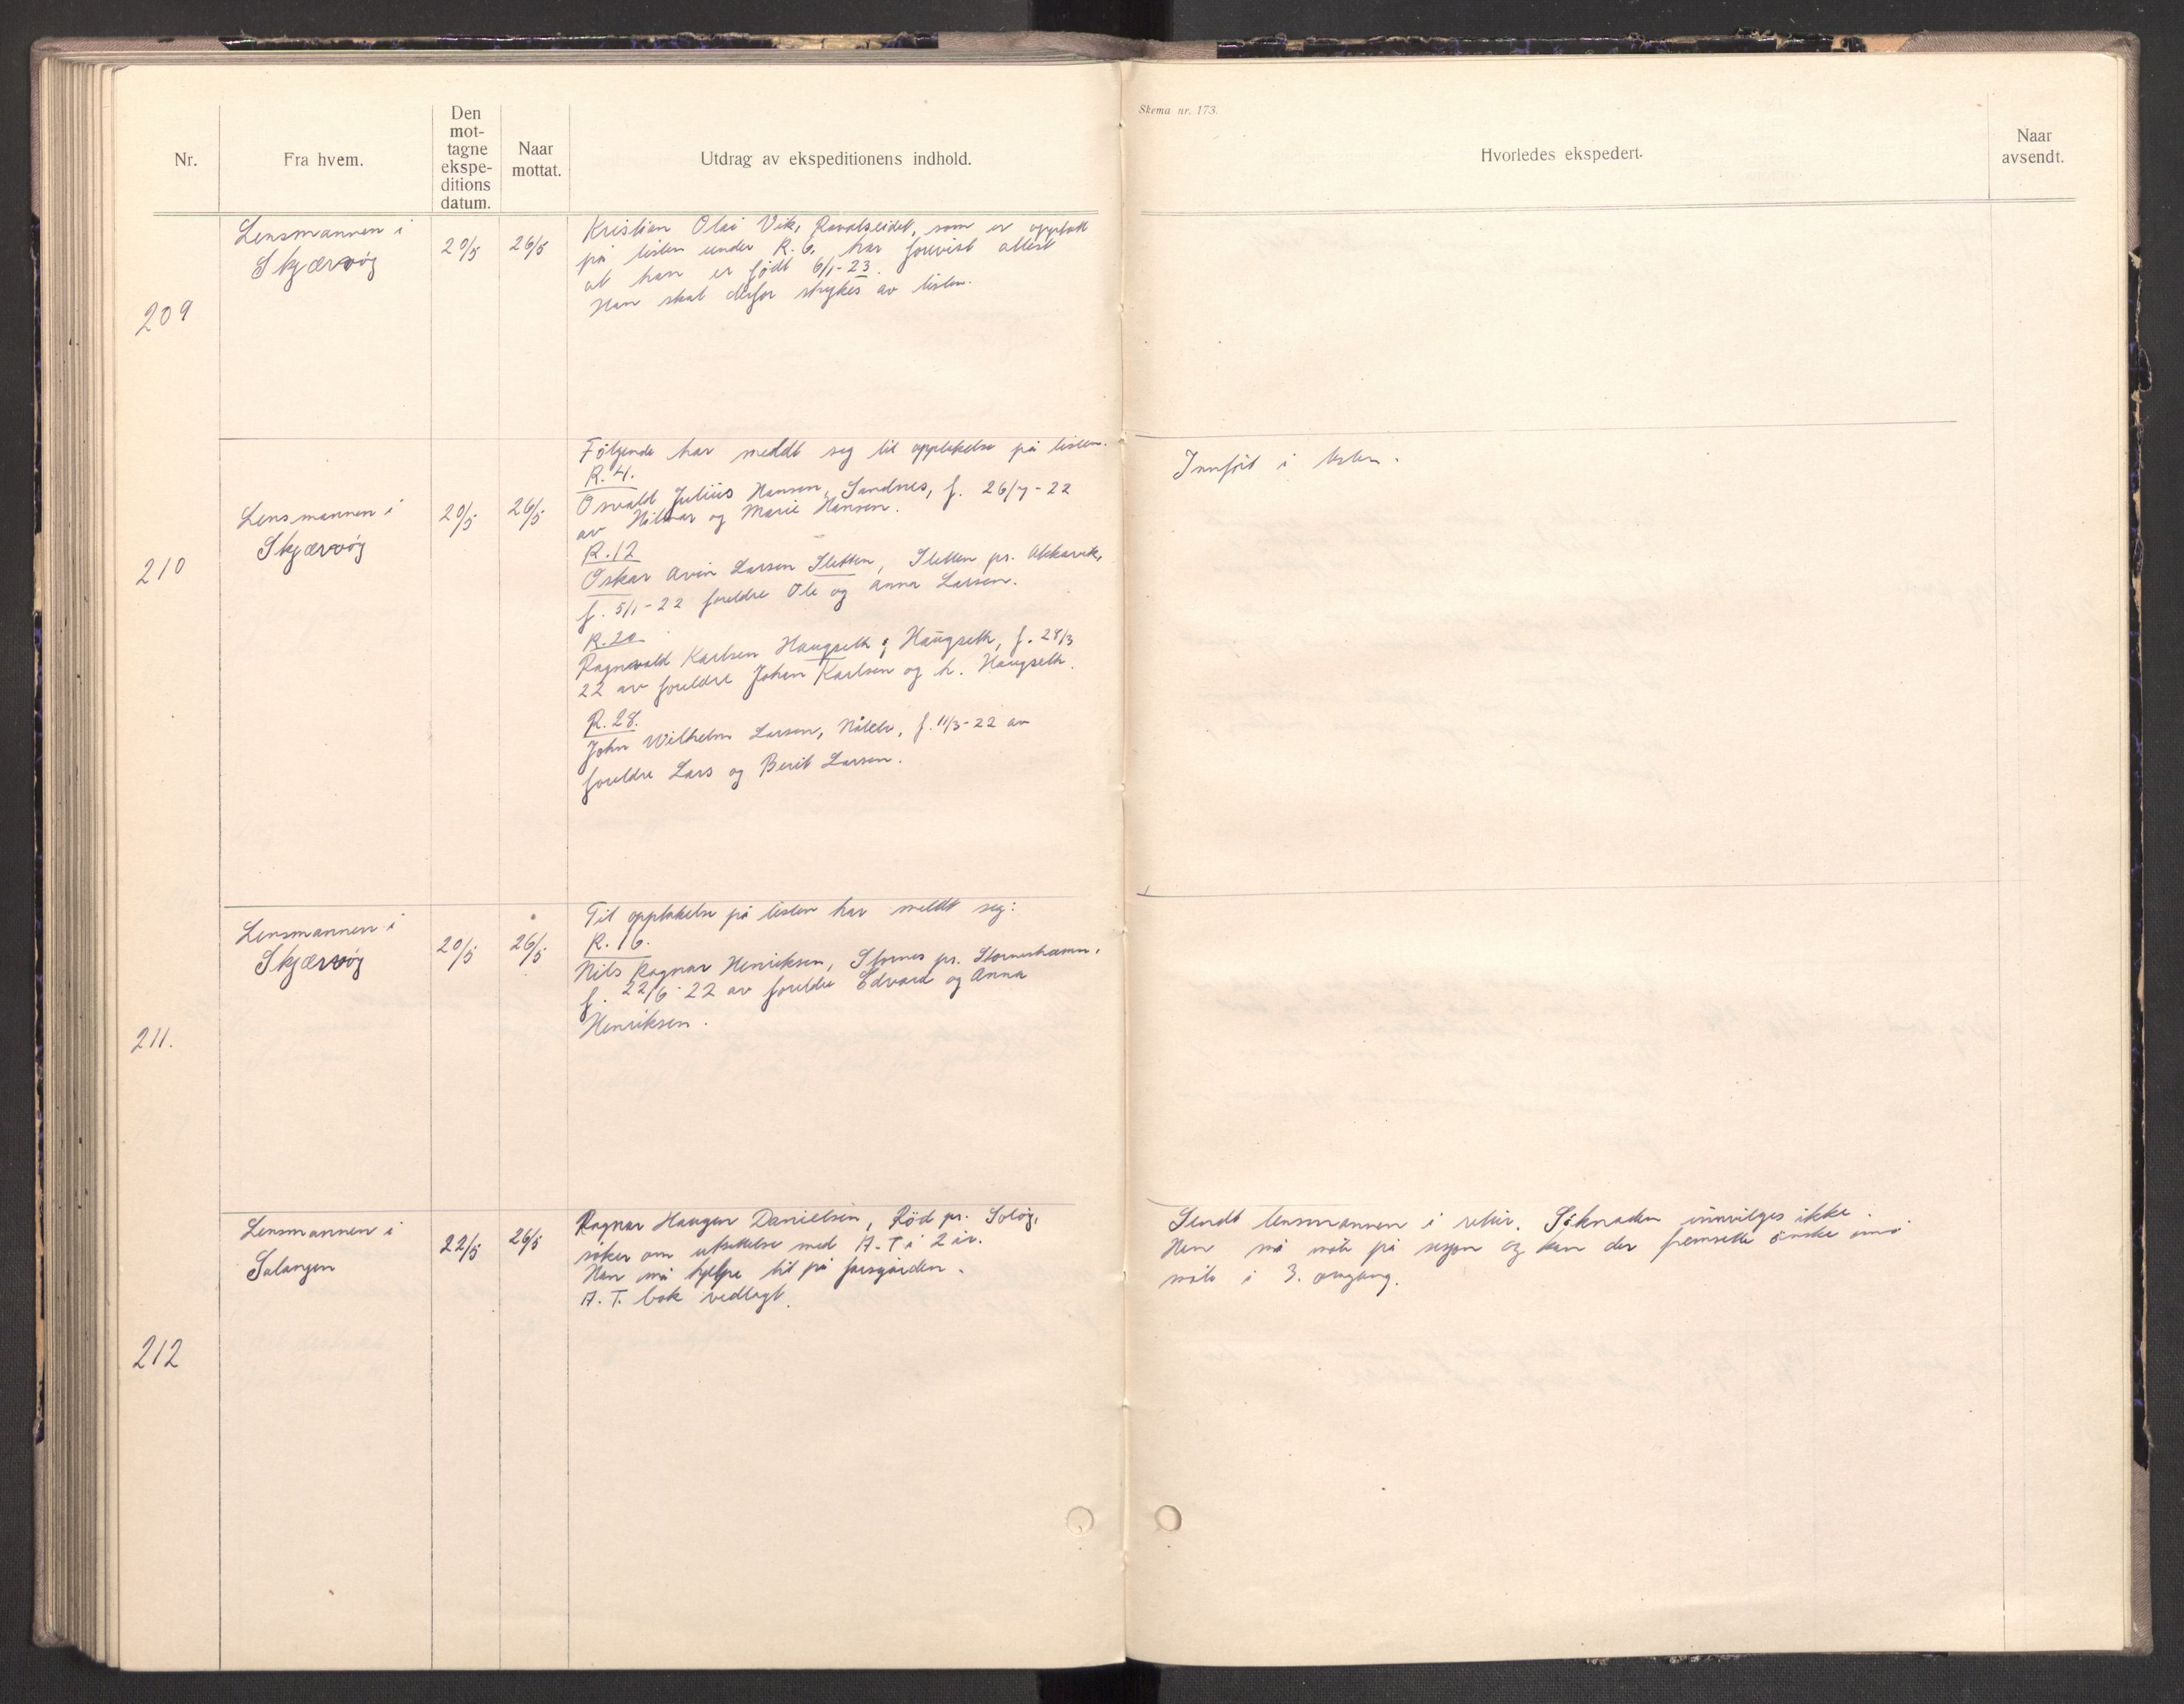 Skema nr. 173.
Nr.
Fra hvem.
Den
mot-
tagne
ekspe-
ditions
datum.
Naar
mottat.
Utdrag av ekspeditionens indhold.
Hvorledes ekspedert.
Naar
avsendt.
209
Lensmannen i
Skjærvöy
20/5
26/5
Kristian Olai Vik, Ravelseidet, som er opptatt
på listen under R. 6. har forevist attest
at han er födt 6/1-23.
Han skal derfor strykes av listen.
210
Lensmannen i
Skjærvöy
20/5
26/5
Fölgende har meldt seg til opptakelse på listen.
R. 4.
Osvald Julius Hansen, Sandnes, f. 26/7-22
av Hilmar og Marie Hansen.
R. 12
Oskar Arvin Larsen Sletten, Sletten pr. Akkarvik,
f. 5/1-22 foreldre Ole og Anna Larsen.
R. 20
Ragnvald Karlsen Haugseth, Haugseth, f. 28/3
22 av foreldre Johan Karlsen og h. Haugseth.
R. 28.
John Wilhelm Larsen, f. 11/3-22 av
foreldre Lars og Berit Larsen.
Innfört i listen.
211.
Lensmannen i
Skjærvöy
20/5
26/5
Til opptakelse på listen har meldt seg:
R. 16.
Nils Ragnar Henriksen, Stornes pr. Storneshamn,
f. 22/6-22 av foreldre Edvard og Anna
Henriksen.
212
Lensmannen i
Salangen
22/5
26/5
Ragnar Haugen Danielsen, Röd pr. Solöy,
söker om utsettelse med A.-T i 2 år.
Han må hjelpe til på farsgården.
A. T. bok vedlagt.
Sendt lensmannen i retur. Söknaden innvilges ikke.
Han må möte på sesjon og kan der fremsette önske om å
möte i 3. omgang.